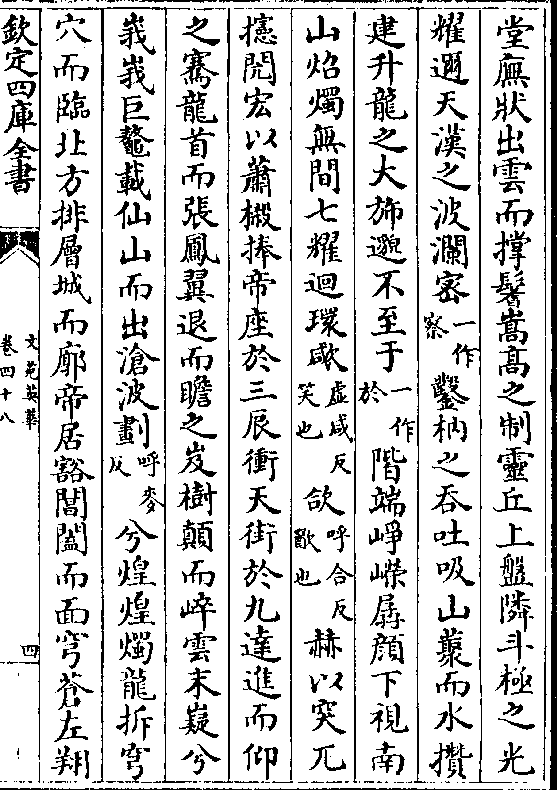 堂廡狀出雲而撑鬐嵩髙之制靈丘上盤隣斗極之光
耀遡天漢之波瀾密一作察鑿枘之吞吐吸山藂而水攢
建升龍之大斾邈不至于一作於階端崢嶸孱顔下視南
山焰燭無間七耀迴環㰹虚咸反笑也欱呼合反歠也赫以突兀
㩵閌宏以蕭樧捧帝座於三辰衝天街於九達進而仰
之騫龍首而張鳳翼退而瞻之岌樹顛而崒雲末嶷兮
峩峩巨鼇載仙山而出滄波劃呼麥反兮煌煌燭龍拆穹
穴而臨北方排層城而廓帝居豁閶闔而面穹蒼左翔
欽定四庫全書
文苑英華
卷四十八
四